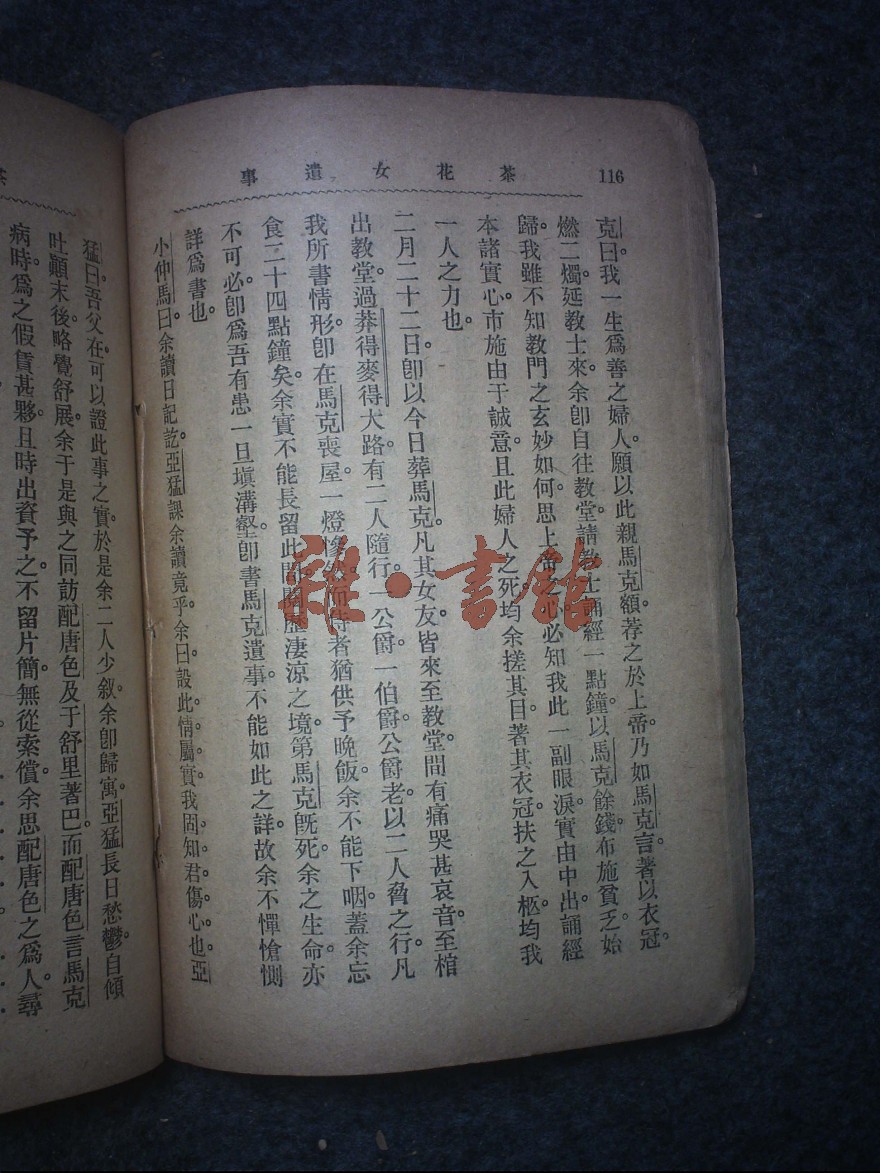 116
茶花女遺事
克曰。我一生爲善之婦人。願以此親馬克額。荐之於上帝。乃如馬克言。著以衣冠。
燃二燭。延教士來。余卽自往教堂。請教士誦經一點鐘。以馬克餘錢布施貧乏。始
歸。我雖不知教門之玄妙如何。思上帝之心。必知我此一副眼淚。實由中出。誦經
本諸實心。布施由于誠意。且此婦人之死。均余搓其目。著其衣冠。扶之入柩。均我
一人之力也。
二月二十二日。卽以今日葬馬克。凡其女友皆來至教堂。間有痛哭甚哀音。至棺
出教堂。過莽得麥得大路。有二人隨行。一公爵。一伯爵。公爵老。以二人脅之行。凡
我所書情形。卽在馬克喪屋。一燈慘然。而侍者猶供予晚飯。余不能下咽。蓋余忘
食二十四點鐘矣。余實不能長留此間。閱歷凄涼之境。第馬克旣死。余之生命亦
不可必。卽爲吾有患。一旦塡溝壑。卽書馬克遺事。不能如此之詳。故余不憚愴惻
詳爲書也。
小仲馬曰。余讀日記訖。亞猛課余讀竟乎。余曰。設此情屬實。我固知君傷心也。亞
茶
猛曰。吾父在。可以證此事之實。於是余二人少敘。余卽歸寓。亞猛長日愁鬱。自傾
吐顚末後。略覺舒展。余于是與之同訪配唐色及于舒里著巴。而配唐色言馬克
病時。爲之假貰甚夥。且時出資予之。不留片簡。無從索償。余思配唐色之爲人。尋
雜·書館